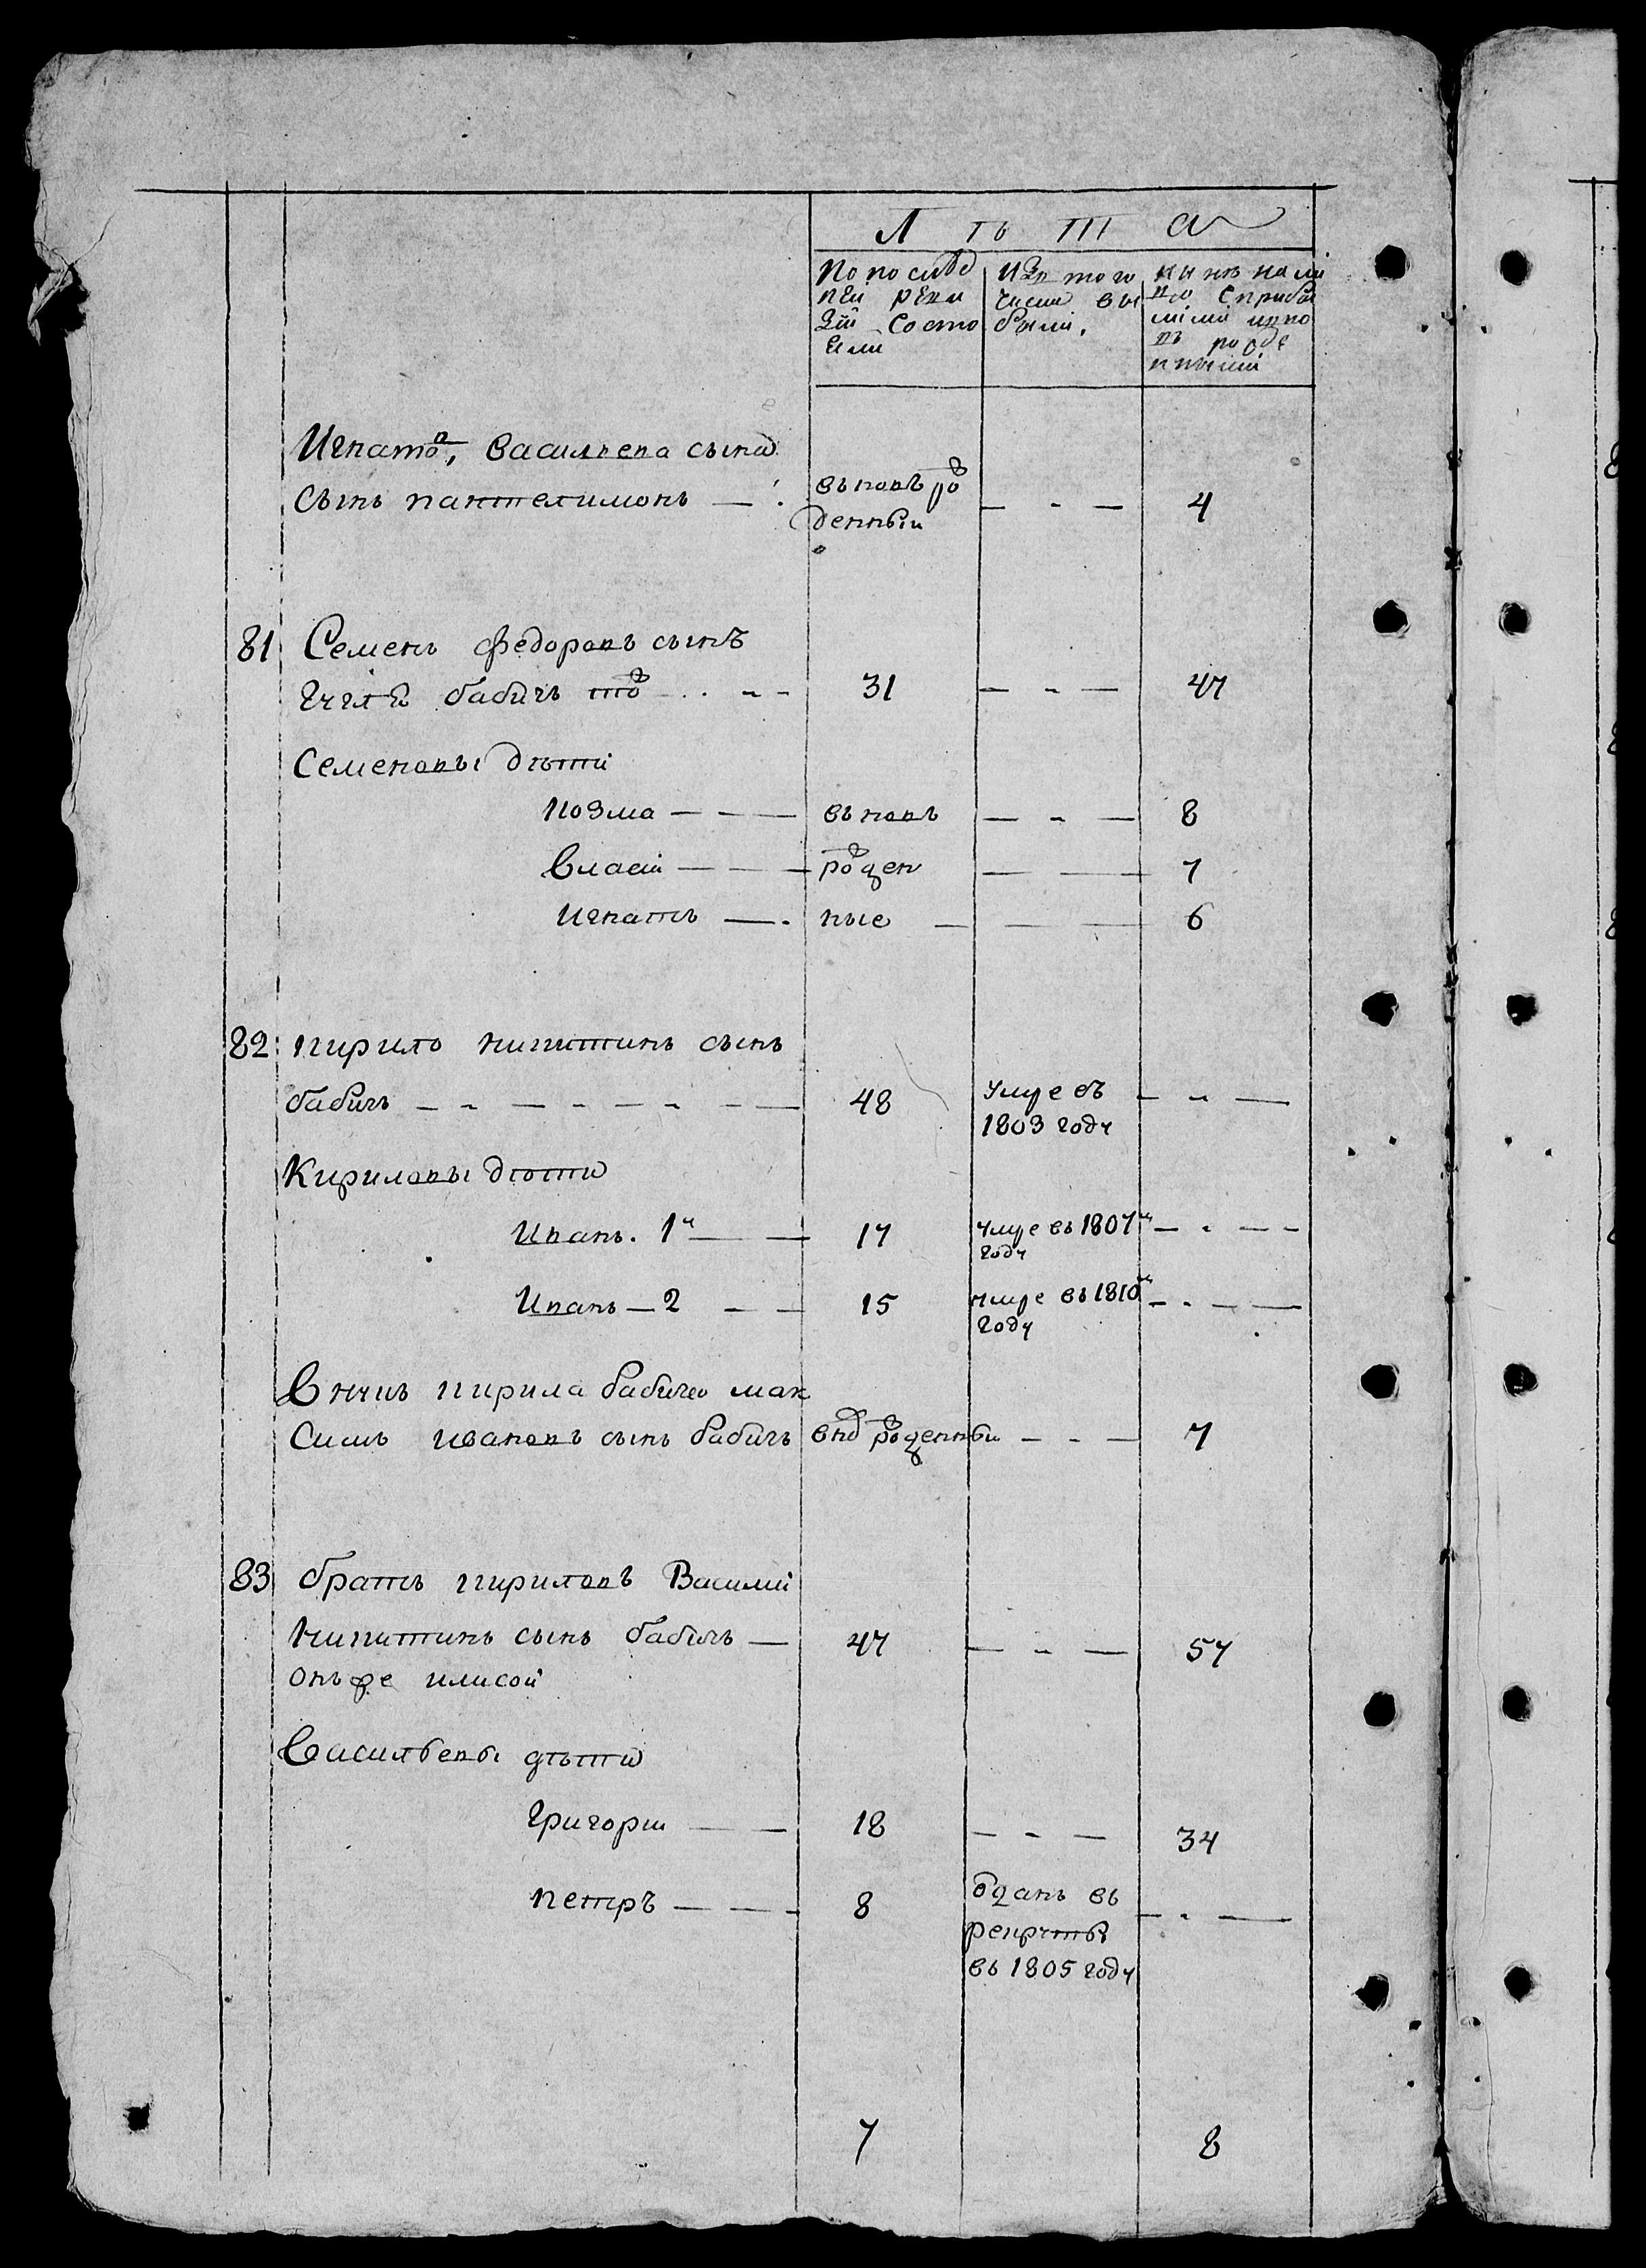 Л ѣ т а
По послѣд
ней реви
зіи состо
яли
Изъ того
числа вы
были.
ны нѣ на ли
цо с прибы
лыми и вно
вь рожде
нными
Игнатов, васильева сына
сынъ пантелимонъ — вьновь ро
жденныи — - — 4
81 Семенъ федоровъ сынъ
бабичь тож - . - - 31 — - — 47
Семеновы дѣти
козма — - — вьновь — - — 8
власіи — - — рожден — — 7
игнатъ — - ные — — — 6
82 кирило никитинъ сынъ
бабичь — - — - — - - — 48 умре въ — - —
1803 году
Кириловы дѣти
Иванъ. 1й — — 17 умре въ 1807м — - — -
году
Иванъ — 2 — — 15 умре въ 1810м — - — —
году
внукъ кирила бабича мак
симъ ивановъ сынъ бабичь внов рожденныи — - — 7
83 братъ кириловъ Василий
никитинъ сынъ бабичь — 47 — - — 57
онъ же илисой
васильевы дѣти
григории — — 18 — - — 34
петръ — — - 8 одданъ въ — - —
рекрутъы
въ 1805 году
7 8